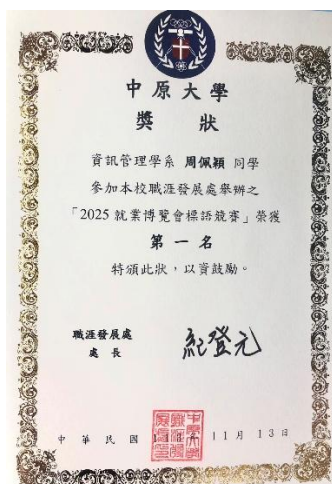 中原大學
獎狀
資訊管理學系 周佩穎 同學
參加本校職涯發展處舉辦之
「2025 就業博覽會標語競賽」榮獲
第一名
特頒此狀，以資鼓勵。
職涯發展處
處長
紀登元
中華民國 11 月 13 日